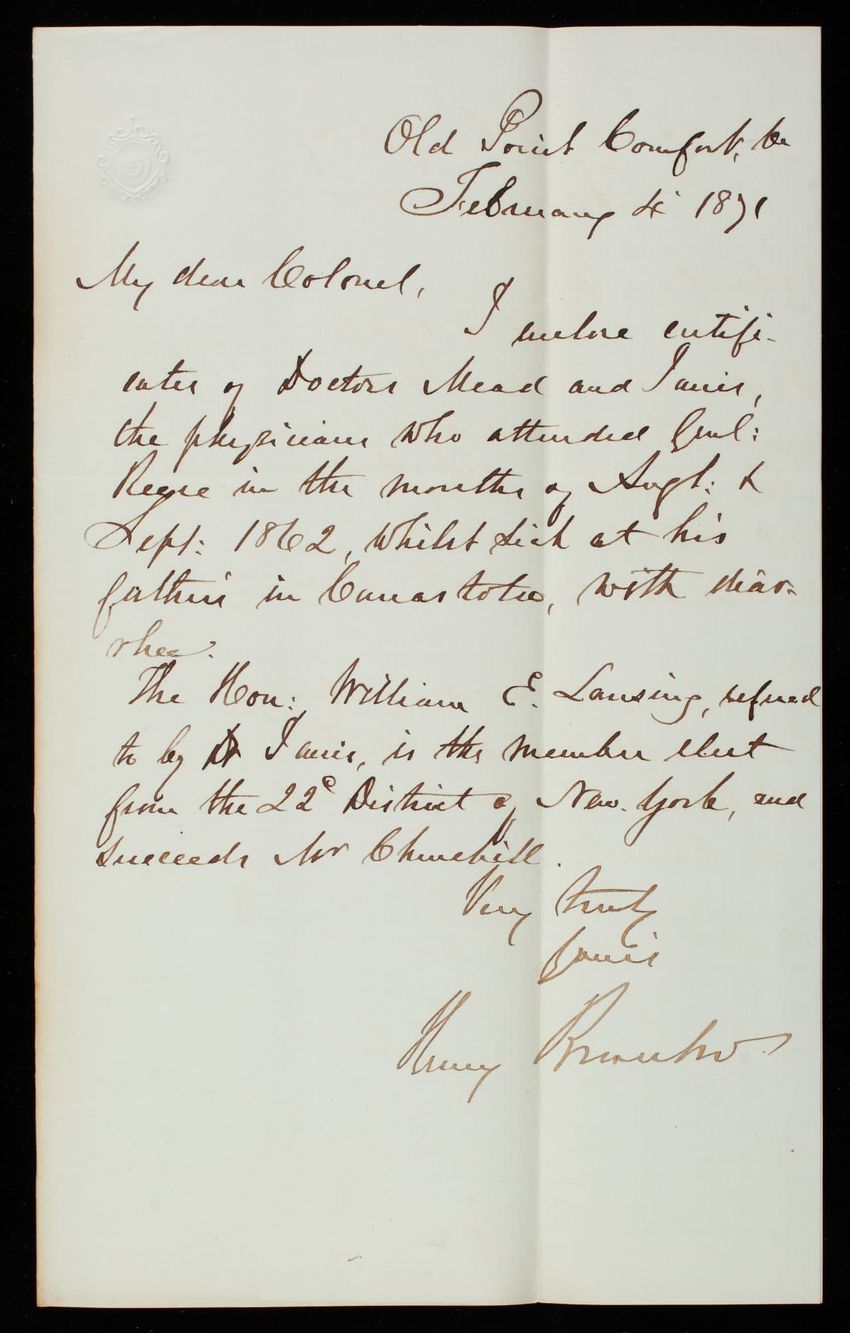 Old Point Comfort, Va
February 4' 1871
My dear Colonel,
I enclose certifi-
cates of Doctors Mead and
the physicians who attended Genl:
Reese in the months of Augt: &
Sept: 1862, whilst sick at his
father's in Canastota, with diar-
rhea.
The Hon: William E. Lansing, referred
to by Dr is the member elect
from the 22d District of New York, and
succeeds Mr Churchill.
Very truly
yours
Henry